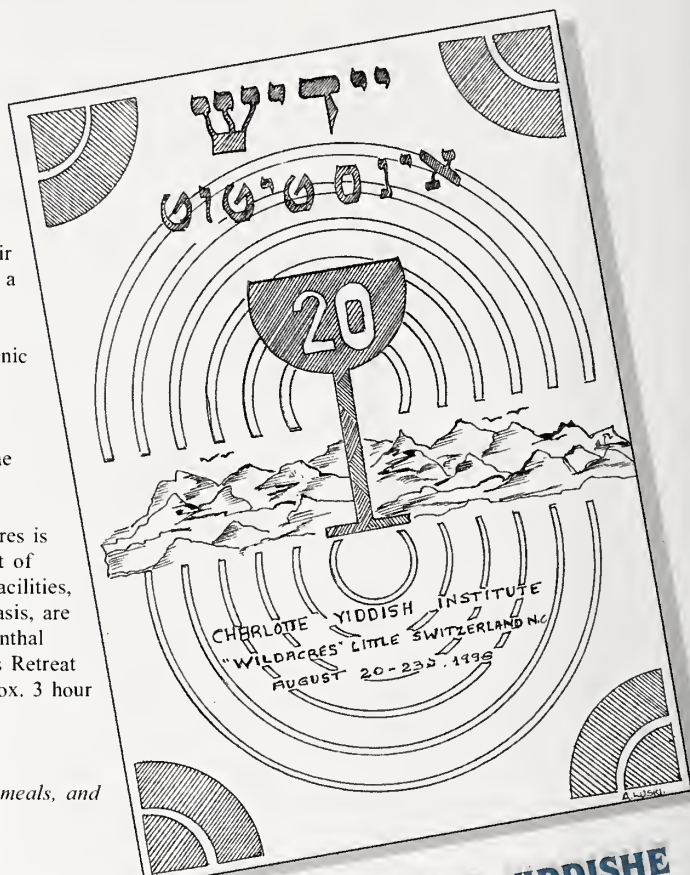 ir
a
nic
res is
t of
acilities,
asis, are
nthal
s Retreat
ox. 3 hour
meals, and
יידיש
אינסטיטוט
20
CHARLOTTE YIDDISH INSTITUTE
"WILDACRES" LITTLE SWITZERLAND N.C.
AUGUST 20-23D. 1996
A. LUSKI.
YIDDISHE